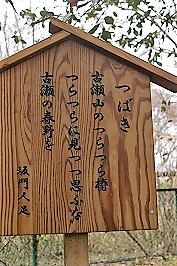 つばき
古瀬山のつらつら椿
つらつらに見つつ思ふな
古瀬の春野を
坂門人足